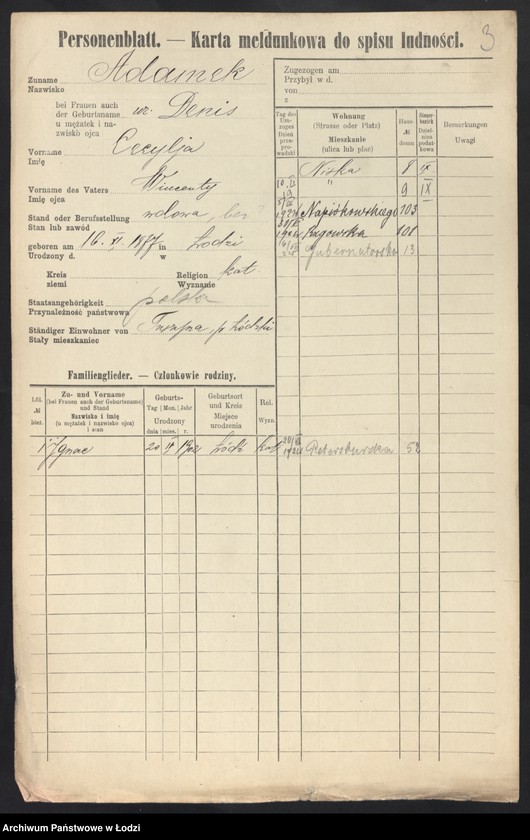 3
Personenblatt. — Karta meldunkowa do spisu ludności.
Zuname
Nazwisko
Adamek
bei Frauen auch
der Geburtsname
u mężatek i na-
zwisko ojca
ur. Denis
Vorname
Imię
Cecylja
Vorname des Vaters
Imię ojca
Wincenty
Stand oder Berufsstellung
Stan lub zawód
wdowa, bez
geboren am 16. XI. 1877 in Łodzi
Urodzony d. w
Kreis
ziemi
Religion
Wyznanie
kat.
Staatsangehörigkeit
Przynależność państwowa
polska
Ständiger Einwohner von
Stały mieszkaniec
p. Łódzki
Familienglieder. — Członkowie rodziny.
Lfd.
№
bież.
Zu- und Vorname
(bei Frauen auch der Geburtsname)
und Stand
Nazwisko i imię
(u mężatek i nazwisko ojca)
i stan
Geburts-
Tag Mon. Jahr
Urodzony
dnia mies. r.
Geburtsort
und Kreis
Miejsce
urodzenia
Rel.
Wyzn.
1 Ignac 20 1902 Łódź kat.
Zugezogen am
Przybył w d.
von
z
Tag des
Um-
zuges
Dzień
prze-
prowadzki
Wohnung
(Strasse oder Platz)
Mieszkanie
(ulica lub plac)
Haus-
№
domu
Steuer-
bezirk
Dziel-
nica
podat-
kowa
Bemerkungen
Uwagi
Niska 8 IX
" 9 IX
Napiórkowskiego 103
Rzgowska 101
Gubernatorska 13
52
Archiwum Państwowe w Łodzi